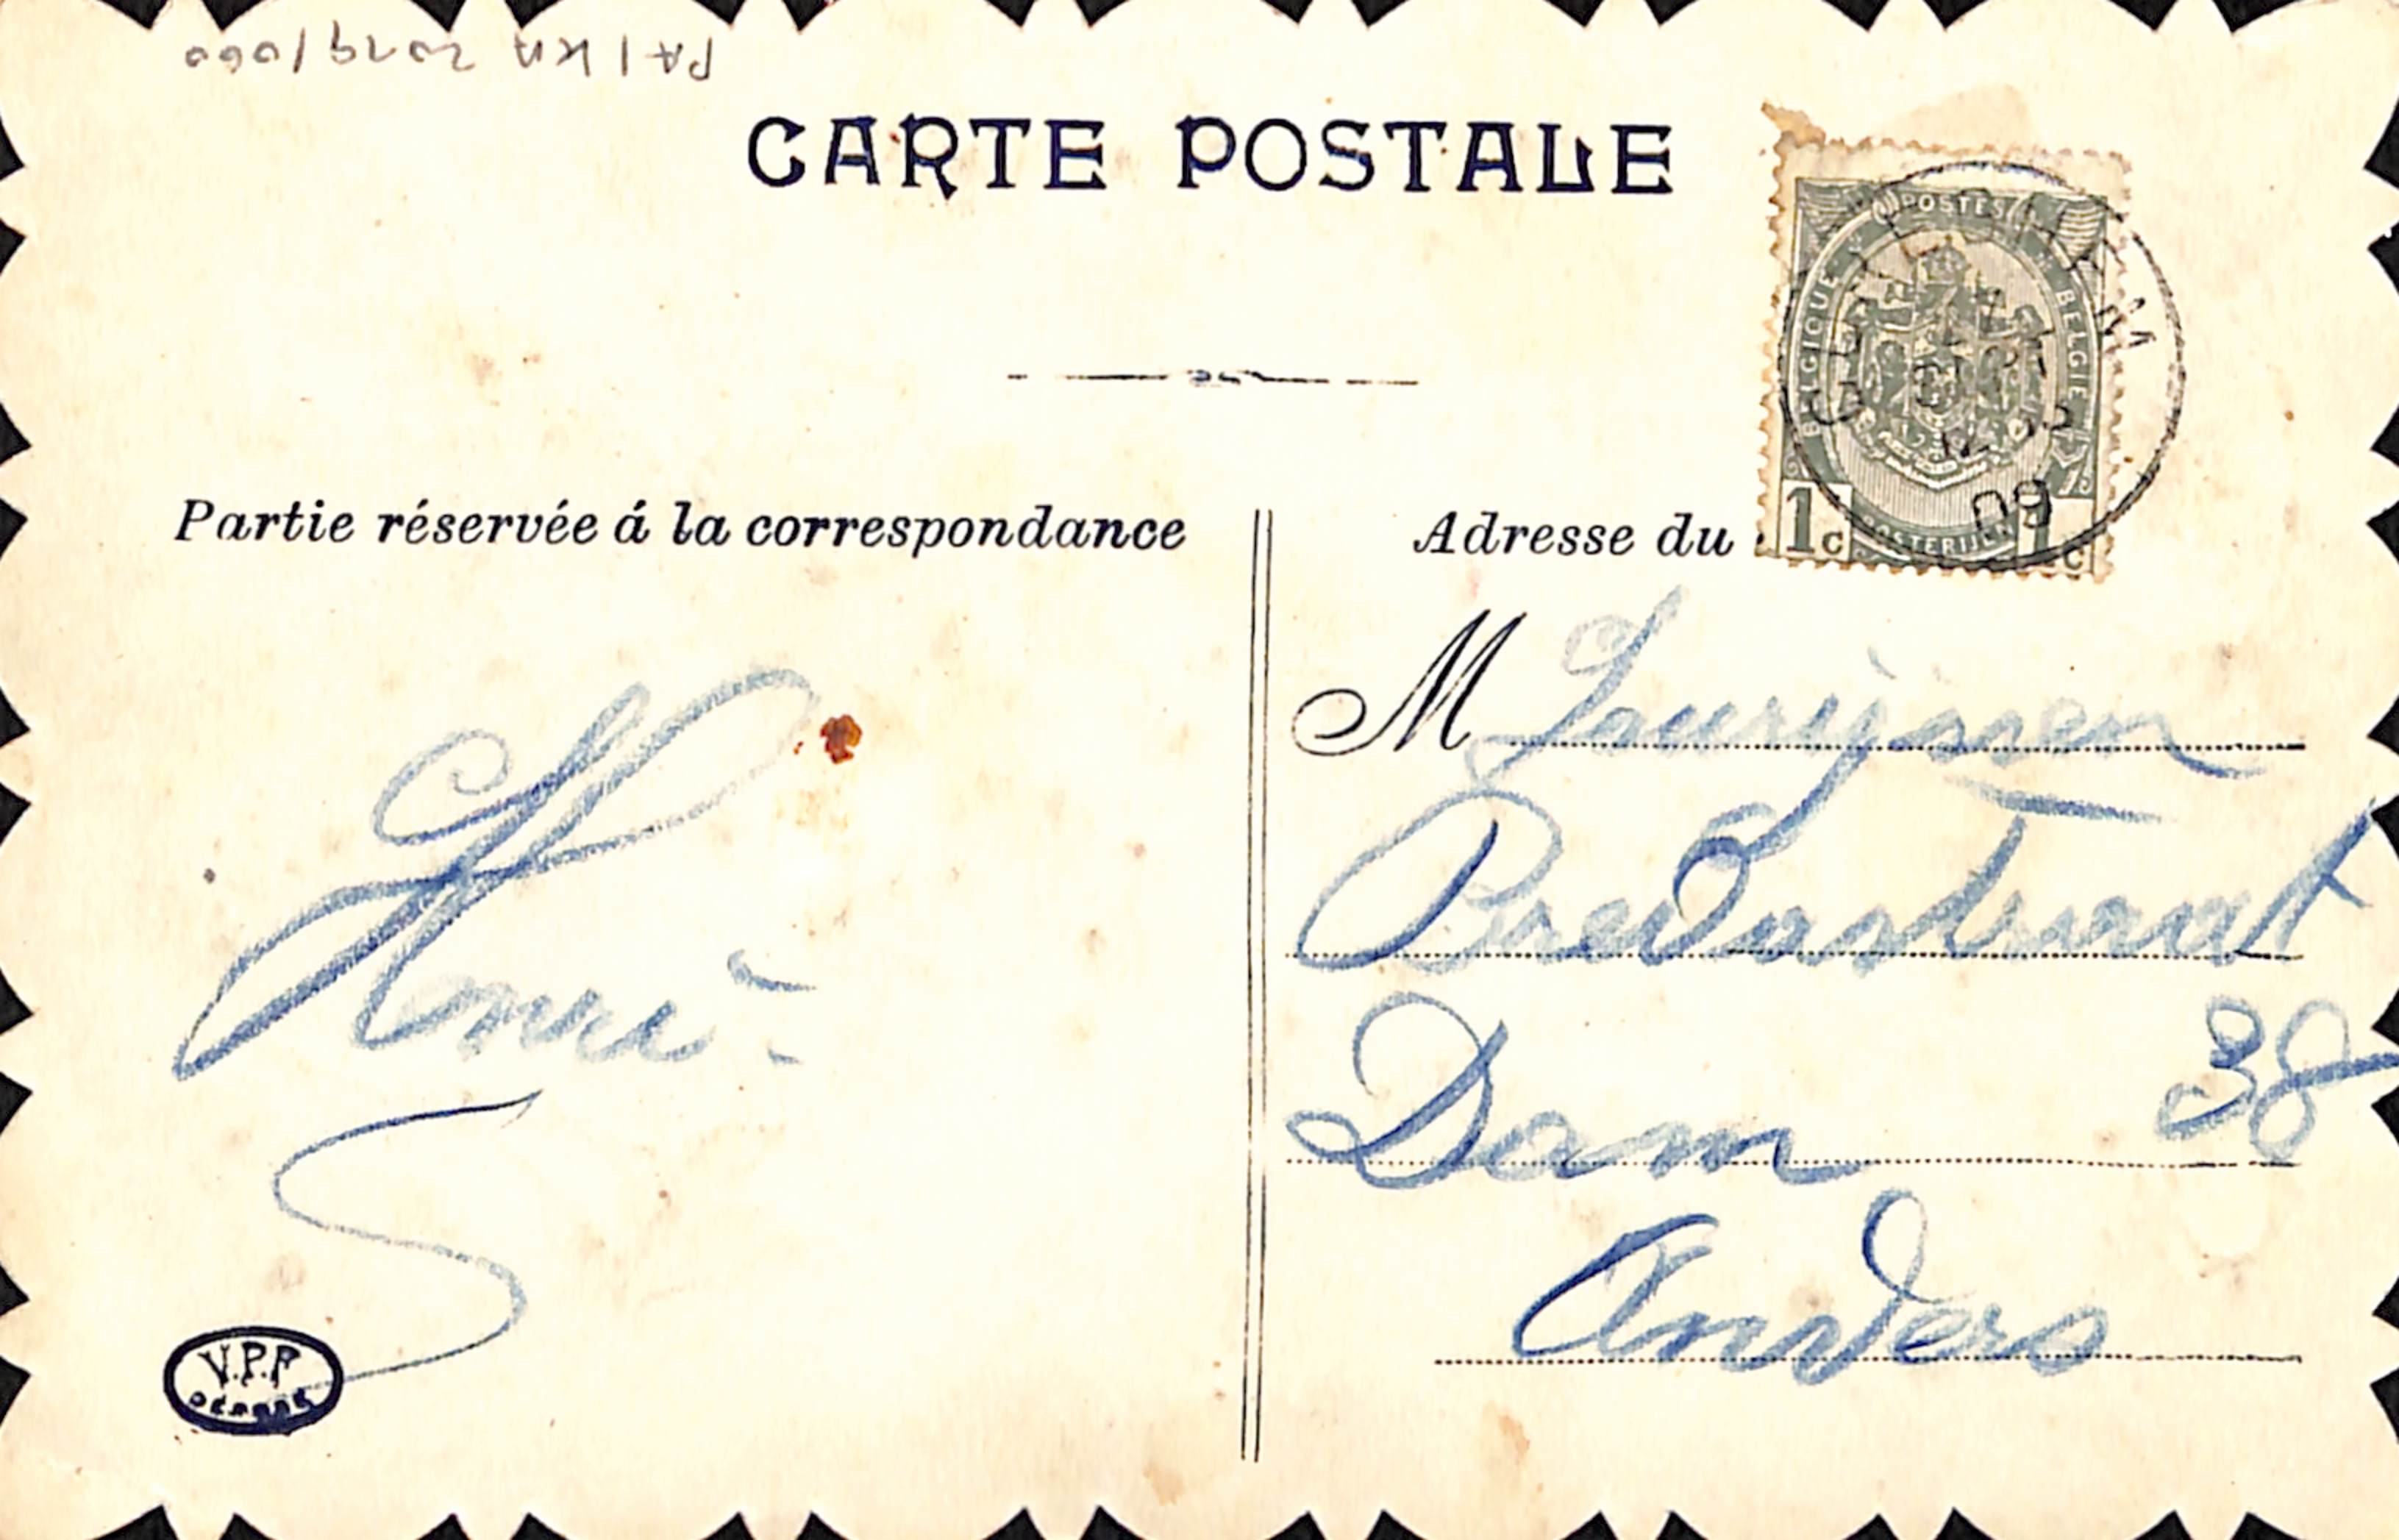 PA/KA 2019/060
CARTE POSTALE
POSTES
BELGIQUE
BELGIE
POSTERIJEN
1c
1c
09
Partie réservée á la correspondance
Adresse du
M Laurijssen
Bredastraat
Dam 38
Anvers
Henri
V.P.F
DÉPOSÉ